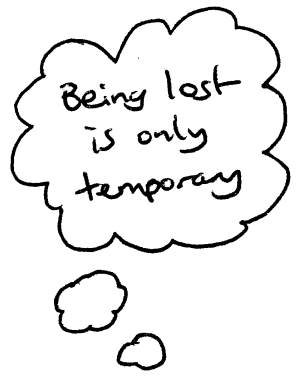 Being lost
is only
temporary